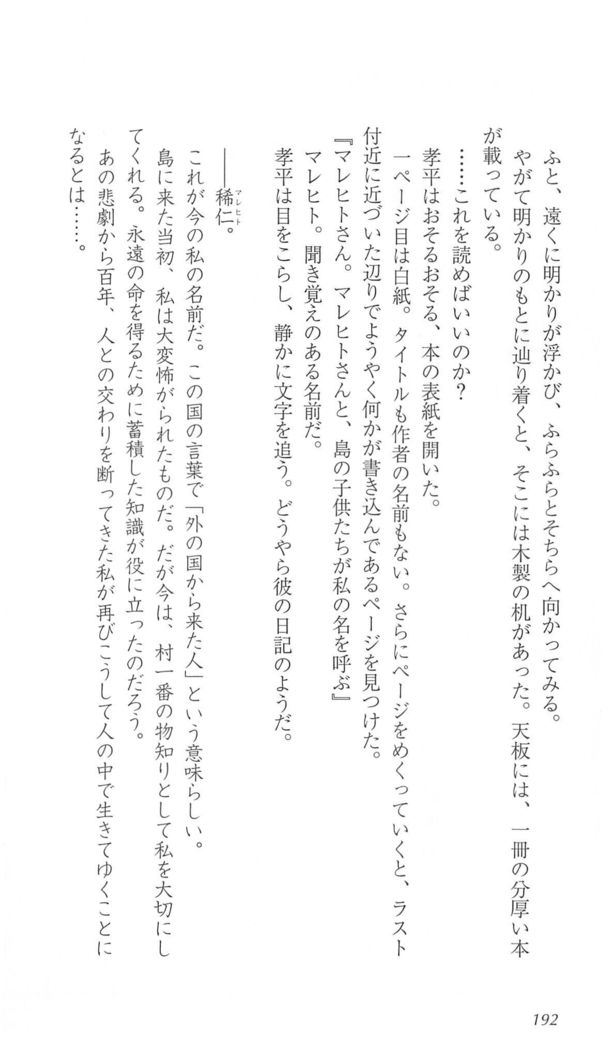 ふと、遠くに明かりが浮かび、ふらふらとそちらへ向かってみる。
やがて明かりのもとに辿り着くと、そこには木製の机があった。天板には、一冊の分厚い本
が載っている。
……これを読めばいいのか？
孝平はおそるおそる、本の表紙を開いた。
一ページ目は白紙。タイトルも作者の名前もない。さらにページをめくっていくと、ラスト
付近に近づいた辺りでようやく何かが書き込んであるページを見つけた。
『マレヒトさん。マレヒトさんと、島の子供たちが私の名を呼ぶ』
マレヒト。聞き覚えのある名前だ。
孝平は目をこらし、静かに文字を追う。どうやら彼の日記のようだ。
――稀仁。
マレヒト
これが今の私の名前だ。この国の言葉で「外の国から来た人」という意味らしい。
島に来た当初、私は大変怖がられたものだ。だが今は、村一番の物知りとして私を大切にし
てくれる。永遠の命を得るために蓄積した知識が役に立ったのだろう。
あの悲劇から百年、人との交わりを断ってきた私が再びこうして人の中で生きてゆくことに
なるとは……。
192